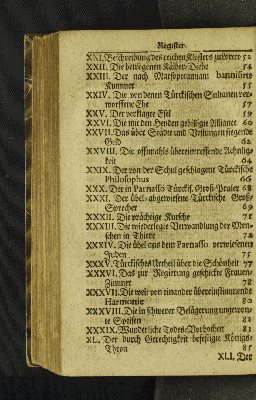 Register.
XXI. Beschreibung des reichen Küsters zuborto 52
XXII. Die betrogenen Kälber-Diebe 54
XXIII. Der nach Mesopotamiam bannisirte
Kummer 55
XXIV. Die von denen Türckischen Sultanen ver-
worffene Ehe 57
XXV. Der verklagte Esel 59
XXVI. Die mit den Heyden gebilligte Allianz 60
XXVII. Das über Städte und Vestungen siegende
Geld 62
XXVIII. Die offtmahls übereintreffende Aehnlig-
keit 64
XXIX. Der von der Schul geschlagene Türckische
Philosophus 66
XXX. Der in Parnasso Türckis. Groß-Praler 68
XXXI. Der übel abgewiesene Türckische Groß-
Sprecher 69
XXXII. Die prächtige Kutsche 71
XXXIII. Die wiederlegte Verwandlung der Men-
schen in Thiere 72
XXXIV. Die übel aus dem Parnasso verwiesenen
Juden 75
XXXV. Türckisches Urtheil über die Schönheit 77
XXXVI. Das zur Regierung geschickte Frauen-
Zimmer 78
XXXVII. Die weit von einander übereinstimmende
Harmonie 80
XXXVIII. Die in schwerer Belägerung ungewon-
te Speisen 81
XXXIX. Wunderliche Todes-Vorbothen 81
XL. Der durch Gerechtigkeit befestigte Königs-
Thron 87
XLI. Der